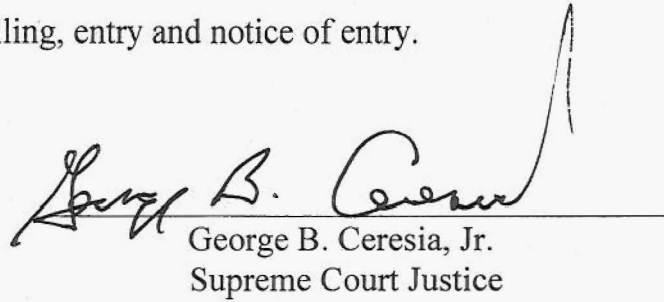 ling, entry and notice of entry.
George B. Ceresia
George B. Ceresia, Jr.
Supreme Court Justice